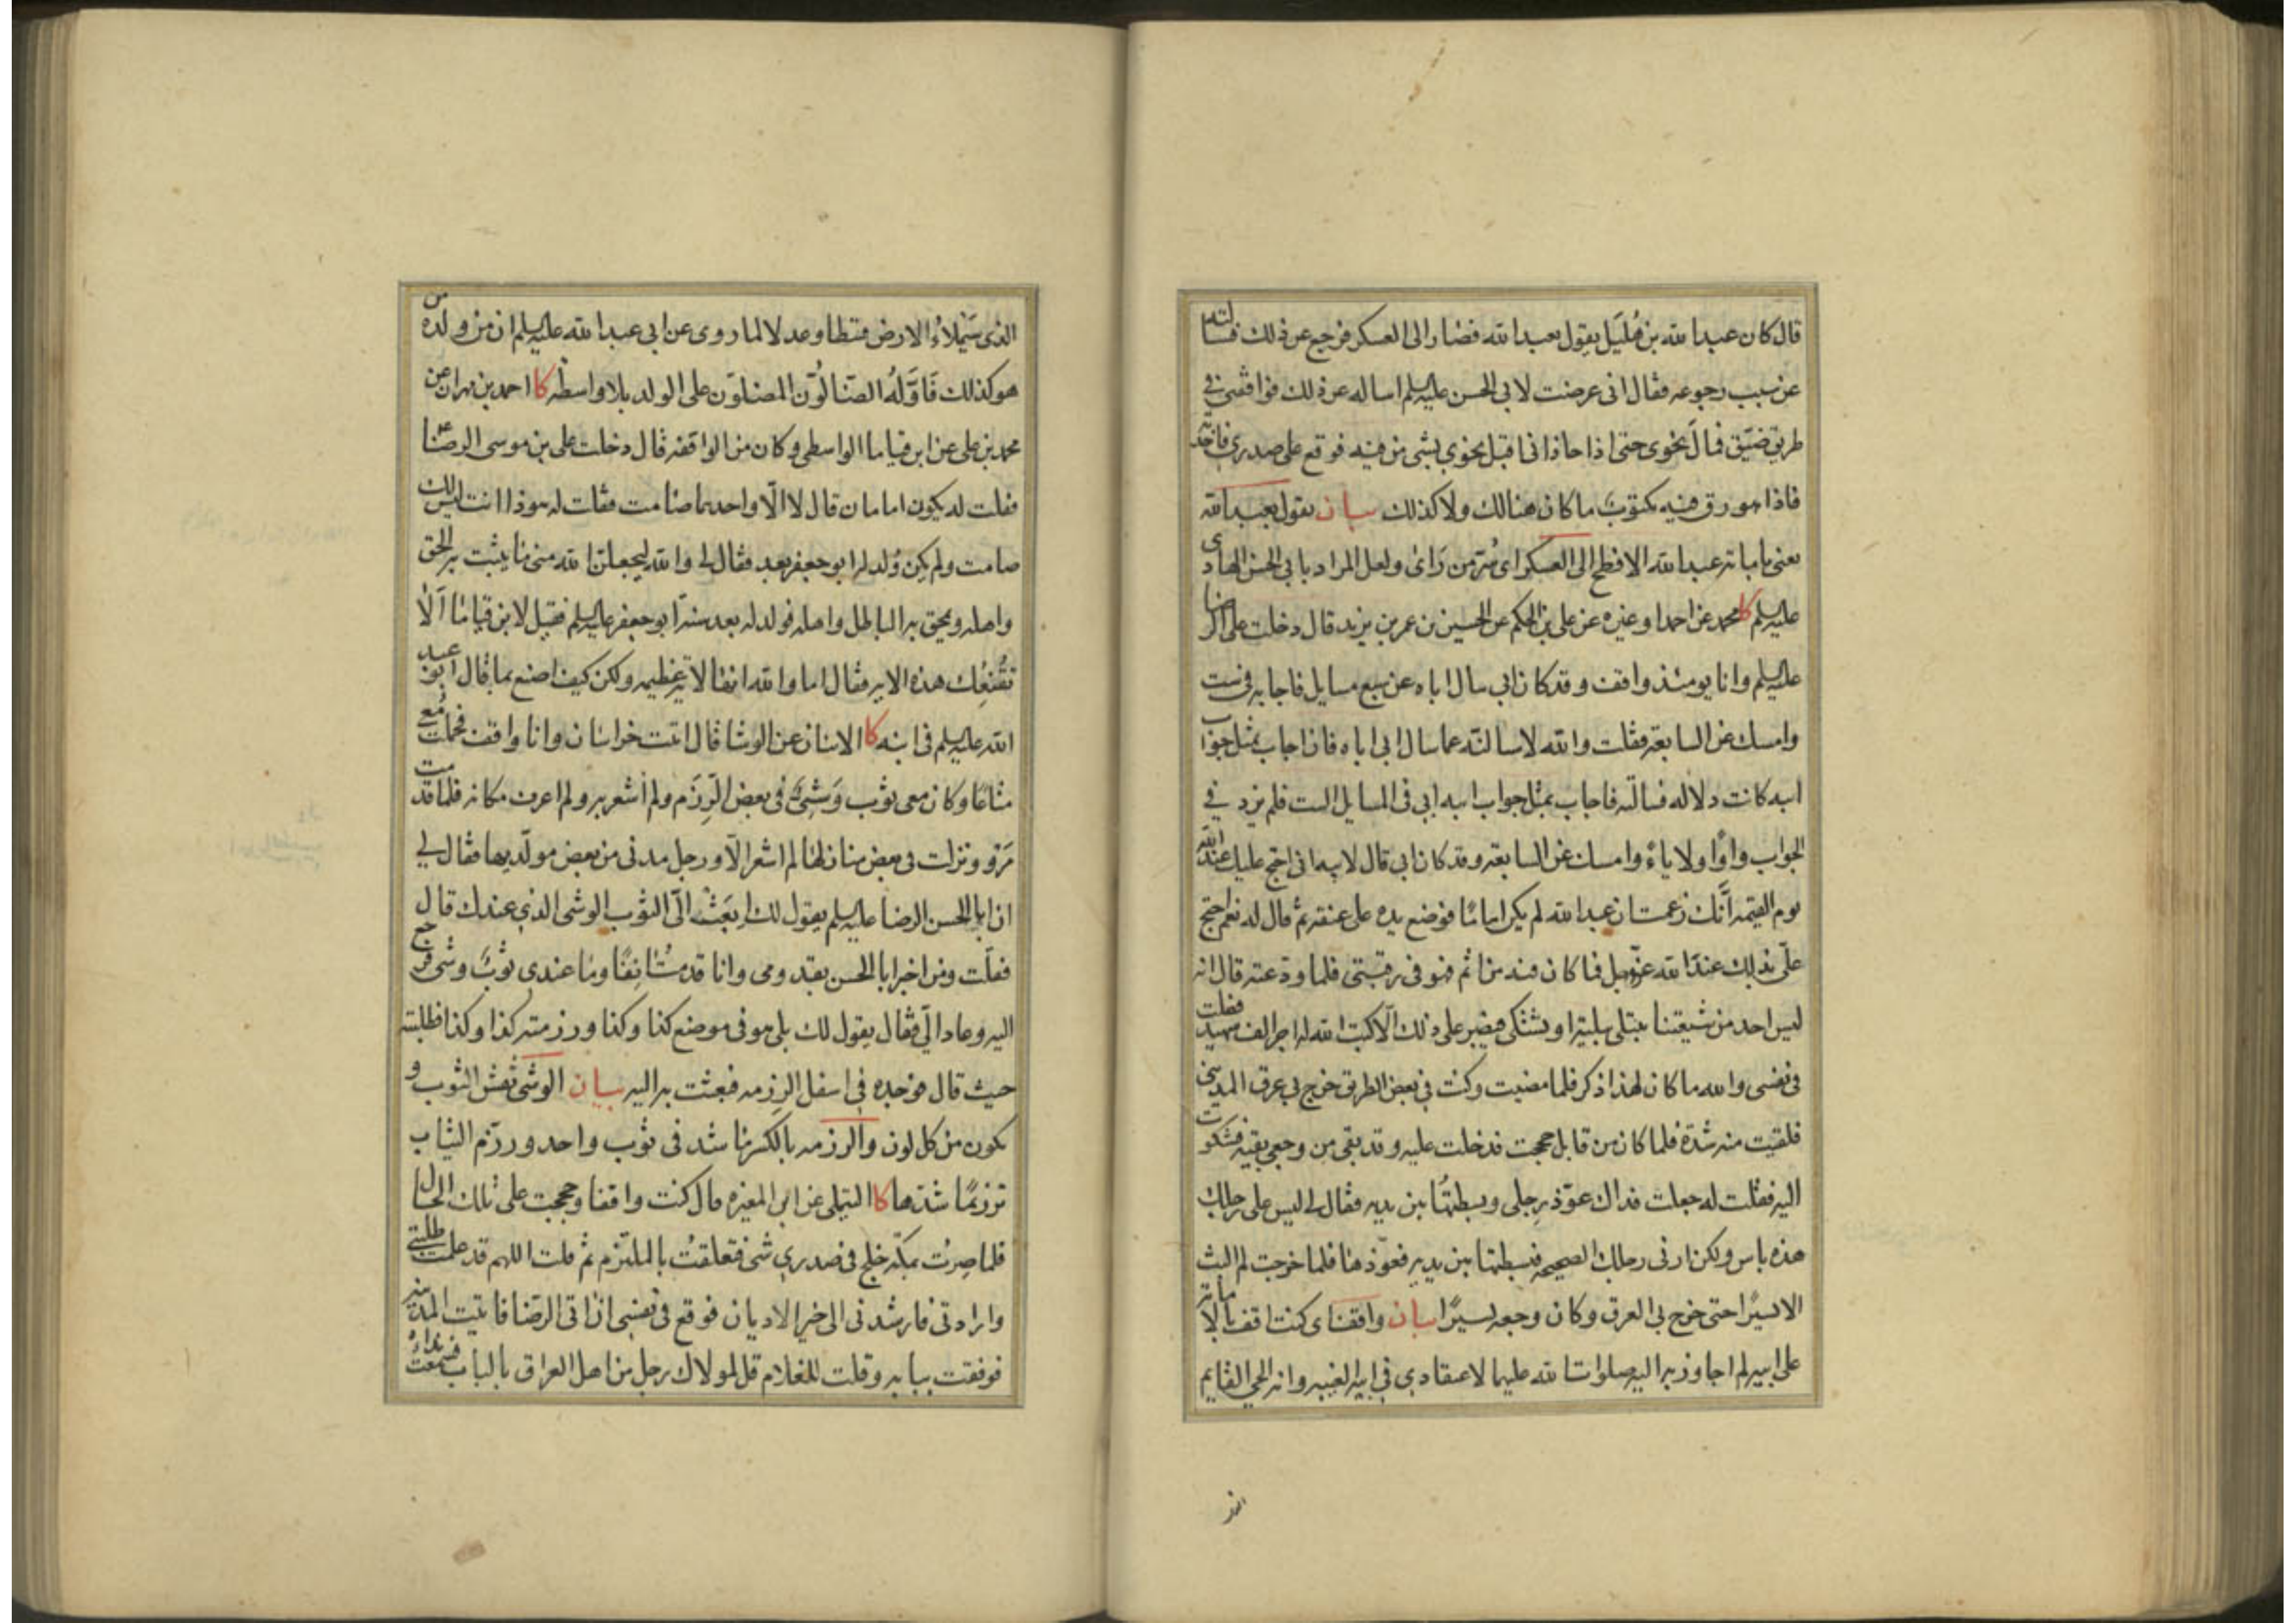 قال كان عبد الله بن هُلَيل يقول بعبد الله فصار الى العسكر فرجع عن ذلك فسالته
عن سبب رجوعه فقال انى عرضت لابى الحسن عليه السلم اساله عن ذلك فوافقنى فى
طريق ضيّق فمالَ نحوى حتى اذا حاذانى اقبل نحوى بشى من فيه فوقع على صدرى فاخذته
فاذا هو رق فيه مكتوبٌ ما كان هنالك ولا كذلك بيان يقول بعبد الله
يعنى بامامة عبد الله الافطح الى العسكر اى سُرّ من رَاىٰ ولعل المراد بابى الحسن الهادى
عليه السلم كا محمد عن احمد او غيره عن على بن الحكم عن الحسين بن عمر بن يزيد قال دخلت على الرضا
عليه السلم وانا يومئذ واقف وقد كان ابى سال اباه عن سبع مسايل فاجابه فى ست
وامسك عن السابعة فقلت والله لاسالنّه عما سال ابى اباه فان اجاب بمثل جواب
ابيه كانت دلاله فسالته فاجاب بمثل جواب ابيه ابى فى المسايل الست فلم يزد فى
الجواب واوًا ولا ياءً وامسك عن السابعة وقد كان ابى قال لابيه انى احتج عليك عند الله
يوم القيمة انّك زعمت ان عبد الله لم يكن امامًا فوضع يده على عنقه ثم قال له نعم احتج
علىّ بذلك عند الله عزّ وجل فما كان فيه من اثم فهو فى رقبتى فلما ودعته قال انه
ليس احد من شيعتنا يبتلى ببلية او يشتكى فيصبر على ذلك الّا كتب الله له اجر الف شهيد فقلت
فى نفسى والله ما كان لهذا ذكر فلما مضيت وكنت فى بعض الطريق خرج بى عرق المدينى
فلقيت منه شدّة فلما كان من قابل حججت فدخلت عليه وقد بقى من وجعى بقيه فشكوت
اليه فقلت له جعلت فداك عوّذ رِجلى وبسطتُها بين يديه فقال لى ليس على رجلك
هذه باس ولكن ارنى رجلك الصحيحه فبسطتها بين يديه فعوّذها فلما خرجت لم البث
الا يسيرًا حتى خرج بى العرق وكان وجعه يسيرًا بيان واقف اى كنت اقف بالامامة
على ابيه لم اجاوز به اليه صلوات الله عليهما لاعتقادى فى ابيه الغيبه وانه الحى القايم
الذى
الذى سَيَملاءُ الارض قسطا وعدلا لما روى عن ابى عبد الله عليه السلم ان من ولده من
هو كذلك فَاَوَّلَهُ الضّالُّون المضلّون على الولد بلا واسطه كا احمد بن مهران عن
محمد بن على عن ابن قياما الواسطى وكان من الواقفه قال دخلت على على بن موسى الرضا ع
فقلت له يكون امامان قال لا الّا واحدهما صامت فقلت له هو ذا انت ليس لك
صامت ولم يكن وُلد له ابو جعفر بعد فقال لى والله ليجعلن الله منى ما يثبت به الحق
واهله ويمحق به الباطل واهله فولد له بعد سنة ابو جعفر عليه السلم فقيل لابن قياما اَلا
تُقنِعُك هذه الايه فقال اما والله انها لايةٌ عظيمه ولكن كيف اصنع بما قال ابو عبد
الله عليه السلم فى ابنه كا الاثنان عن الوشا قال اتيت خراسان وانا واقف فحملت معى
متاعًا وكان معى ثوب وَشِىٌّ فى بعض الرِّزَم ولم اشعر به ولم اعرف مكانه فلما قدمت
مَرو ونزلت فى بعض منازلها لم اشعر الّا ورجل مدنى من بعض مولّديها فقال لى
ان ابا الحسن الرضا عليه السلم يقول لك اِبعَث الىّ الثوب الوشى الذى عندك قال
فقلت ومن اخبر ابا الحسن بقدومى وانا قدمتُ انِفًا وما عندى ثوبٌ وشى فرجع
اليه وعاد الىّ فقال يقول لك بلى هو فى موضع كذا وكذا ورزمته كذا وكذا فطلبته
حيث قال فوجدته فى اسفل الرزمه فبعثت به اليه بيان الوشى نقش الثوب و
يكون من كل لون والرزمه بالكسر ما شد فى ثوب واحد ورزّم الثياب
ترزيمًا شدّها كا التيملى عن ابن المغيره قال كنت واقفا وحججت على تلك الحال
فلما صِرتُ بمكّة خلج فى صدرى شى فتعلقتُ بالملتزم ثم قلت اللهم قد علمت طلبتى
وارادتى فارشدنى الى خير الاديان فوقع فى نفسى ان اتى الرضا فاتيت المدينه
فوقفت ببابه وقلت للغلام قل لمولاك رجل من اهل العراق بالباب فسمعت نداءه